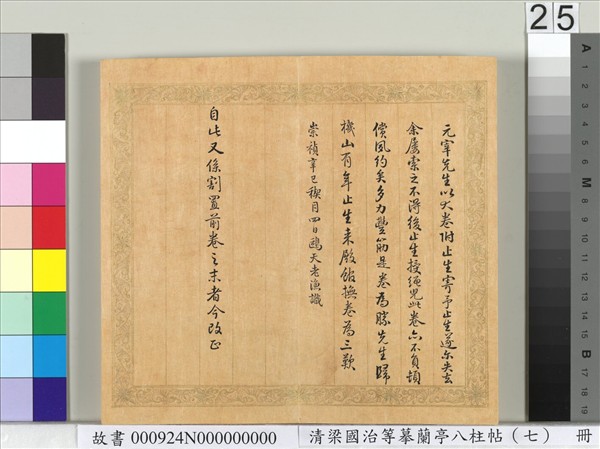 元宰先生以大卷附止生寄予止生遂尔失去
余屡索之不得後止生授
此卷亦不負頓
償夙約矣多力豐筋是卷為勝先生歸
機山有年止生來殿餘撫卷為三歎
崇禎辛巳禊月四日鷗天老漁識
自此又係割置前卷之末者今改正
25
故書 000924N000000000
清梁國治等摹蘭亭八柱帖（七） 冊
A
1
2
3
4
5
6
M
8
9
10
11
12
13
14
15
B
17
18
19